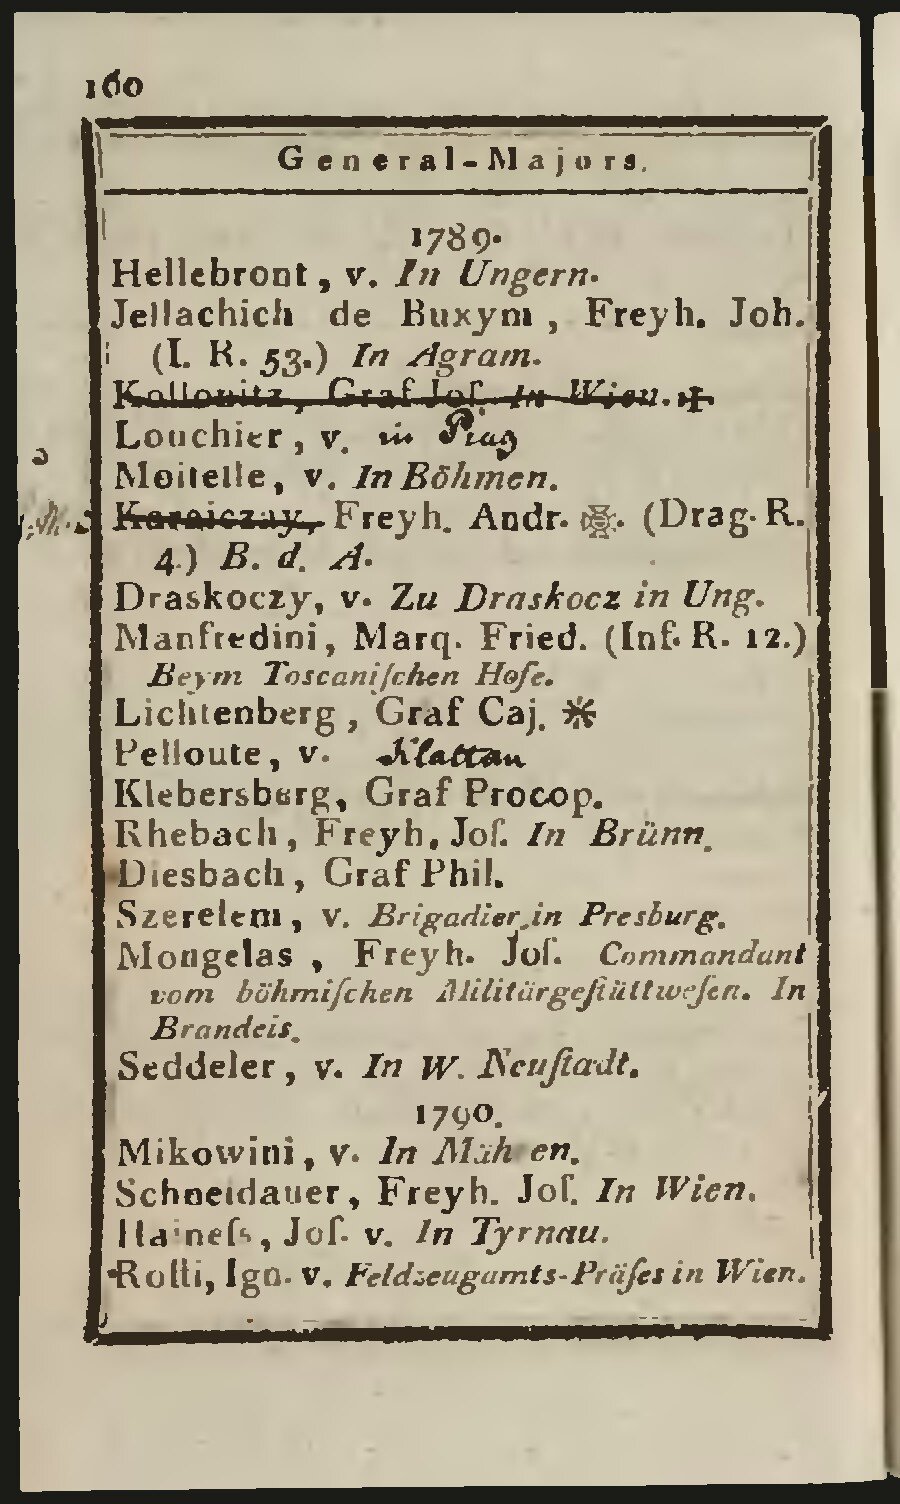 160
General-Majors.
1789.
Hellebront, v. In Ungern.
Jellachich de Buxym, Freyh. Joh.
(I. R. 53.) In Agram.
Kollonitz, Graf Joſ. In Wien. ✠
Louchier, v. in Prag
Moitelle, v. In Böhmen.
Karaiczay, Freyh. Andr. ✠. (Drag. R.
4.) B. d. A.
Draskoczy, v. Zu Draskocz in Ung.
Manfredini, Marq. Fried. (Inf. R. 12.)
Beym Toscaniſchen Hofe.
Lichtenberg, Graf Caj. *
Pelloute, v. Klattau
Klebersberg, Graf Procop.
Rhebach, Freyh. Joſ. In Brünn.
Diesbach, Graf Phil.
Szerelem, v. Brigadier in Presburg.
Mongelas, Freyh. Joſ. Commandant
vom böhmiſchen Militärgeſtüttweſen. In
Brandeis.
Seddeler, v. In W. Neuſtadt.
1790.
Mikowini, v. In Mähren.
Schneidauer, Freyh. Joſ. In Wien.
Haineſs, Joſ. v. In Tyrnau.
Rolli, Ign. v. Feldzeugamts-Präſes in Wien.